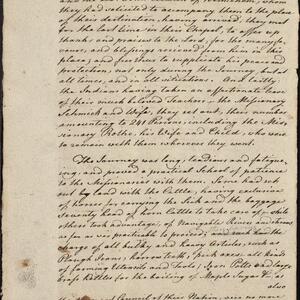 they had solicited to accompany them to the place
of their destination, having arrived, they met
for the last time in their Chapel, to offer up
thanks and praises to the Lord, for the many fa-
vours and blessings received from him in this
place; and fervous to supplicate his peace and
protection, not only during the Journey but at
all times, and in all situations. And lastly
the Indians having taken an affectionate leave
of their much beloved Teachers, the Missionary
Schmick and Wife, they set out, their number
amounting to 241 Persons including the Mis-
sionary Rothe, his Wife and Child, who were
to remain with them wherever they went.
The Journey was long, tedious and fatigue-
ing, and proved a practical School of patience
to the Missionaries with them. One had set
out by Land with the Cattle, having exclusive
of horses for carrying the Sick and the baggage
Seventy head of horn Cattle to take care of, while
others took advantage, of Navigable Rivers and streams
as far as was practicable
charge of all bulky and heavy Articles, such as
Plough Irons, harrow teeth, pick axes, all kinds
of farming Utensils and Tools, Iron Pots and large
brass Kettles for the boiling of Maple Sugar &c. as
Council of their Nation, was no more